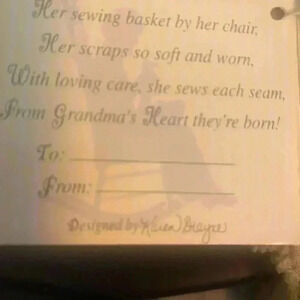 Her sewing basket by her chair,
Her scraps so soft and worn,
With loving care, she sews each seam,
From Grandma's Heart they're born!
To:
From:
Designed by Karen